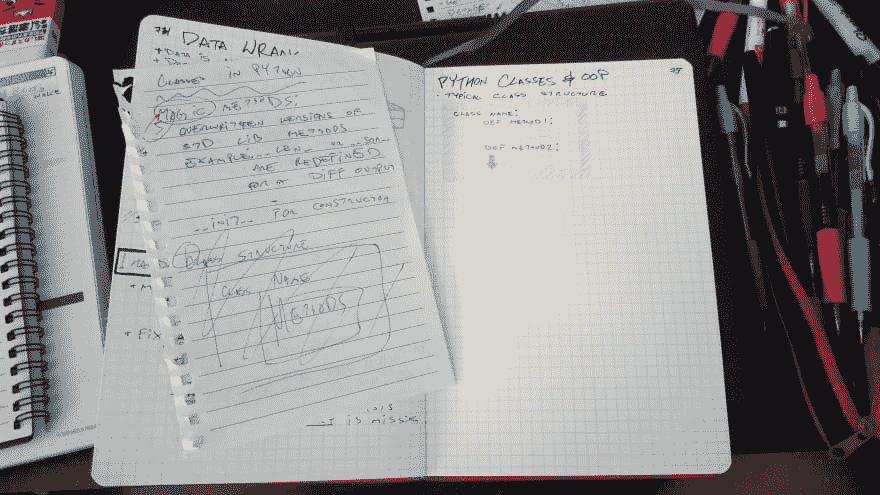 DATA WRAN
+ DATA IS
CLASSES IN PYTHON
MAGIC METHODS:
OVERWRITTEN VERSIONS OF
STD LIB METHODS
EXAMPLE: __LEN__ OR __STR__
ARE REDEFINED
FOR A DIFF OUTPUT
__INIT__ FOR CONSTRUCTOR
CLASS STRUCTURE
CLASS NAME
METHODS
+ M
+ FIX
IS MISSING
PYTHON CLASSES & OOP
· TYPICAL CLASS STRUCTURE
CLASS NAME:
DEF METHOD1:
DEF METHOD2: